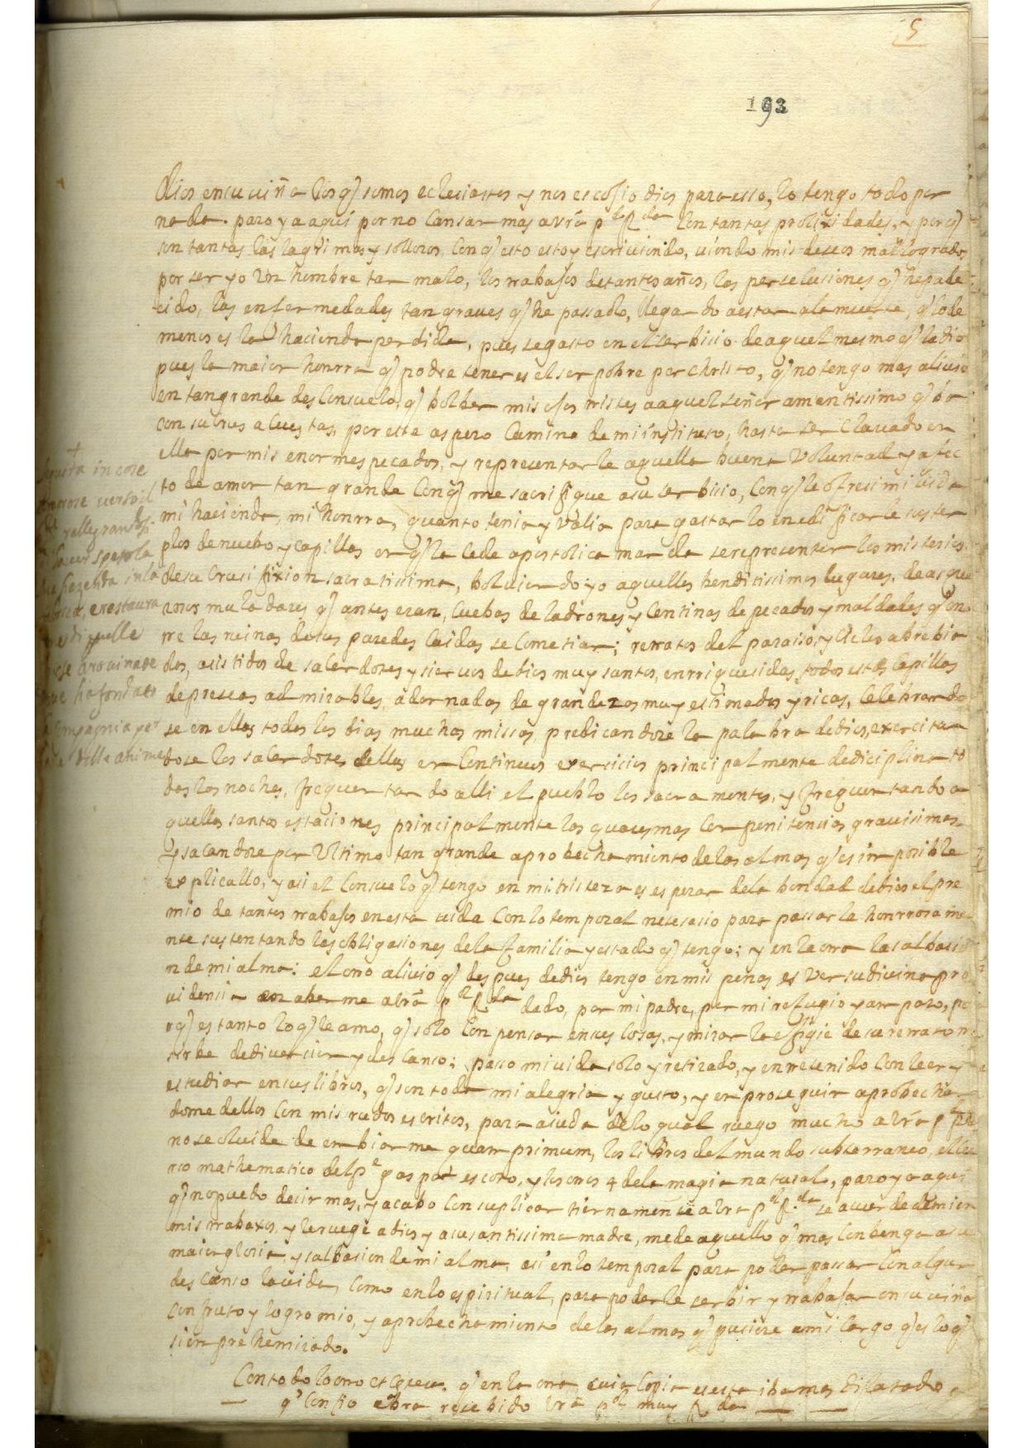 5
193
Dios en su viña los q̃ somos eclesiastos y nos escojio dios para esso, lo tengo todo por
nada. paro ya aqui por no cansar mas a vr̃a pd. Rda. con tantas prolixidades, y porq̃
son tantas las lagrimas y sollozos, con q̃ esto estoy escriviendo, viendo mis deseos mallogrados
por ser yo un hombre tan malo, los trabajos de tantos años, las persecusiones q̃ he pade
cido, las enfermedades tan graves q̃ he passado, llegando a estar a la muerte, q̃ lo de
menos es la hacienda perdida, pues se gasto en el serbicio de aquel mesmo q̃ la dio
pues la maior honrra q̃ podre tener es el ser pobre por christo, q̃ no tengo mas alivio
en tan grande desconsuelo, q̃ bolber mis ojos tristes a aquel señor amantissimo q̃ ba
con su crus a cuestas, por este aspero camino de mi instituto, hasta ser clavado en
ella por mis enormes pecados, y representarle aquella buena voluntad y afec
to de amor tan grande con q̃ me sacrifique a su serbicio, con q̃ le ofresi mi vida
mi hacienda, mi honrra, quanto tenia y valia para gastarlo en edificarle tem
plos de nuebo y capillas en q̃ la cede apostolica manda se representen los misterios
de su crusifixion sacratissima, bolviendo yo aquellos benditissimos lugares, de asque
rosos muladares q̃ antes eran, cuebas de ladrones y centinas de pecados y maldades q̃ en
tre las ruinas de sus paredes caidas se cometian; retratos del paraiso, y cielos abrebia
dos, asistidos de sacerdotes y siervos de dios muy santos, enrriquesidas todas estas capillas
de preseas admirables, adornadas de grandezas muy estimados y ricas, celebrando
se en ellas todos los dias muchas missas, predicandose la palabra de dios, exercitan
dose los sacerdotes dellas en continuos exersicios principalmente de diciplina to
das las noches, frequentando alli el pueblo los sacramentos, y frequentando a
quellas santas estaciones principalmente las quaresmas con penitencias gravisimas
y sacandose por ultimo tan grande aprobechamiento de las almas q̃ es imposible
explicallo, y asi el consuelo q̃ tengo en mi tristeza es esperar de la bondad de dios el pre
mio de tantos trabajos en esta vida con lo temporal necesario para passarla honrrorame
nte sustentando las obligasiones de la familia y estado q̃ tengo; y en la otra la salbasio
n de mi alma: el otro alivio q̃ despues de dios tengo en mis penas es ver su divina pro
videnzia en aberme a vr̃a pd. Rda. dado, por mi padre, por mi refugio y amparo, po
rq̃ es tanto lo q̃ le amo, q̃ solo con pensar en sus cosas, y mirar la efigie de su retrato me
sirbe de divercion y descanso; paso mi vida solo y retirado, y entretenido con leer y
estudiar en sus libros, q̃ son toda mi alegria y gusto, y en proseguir aprobechan
dome dellos con mis rudos escritos, para aiuda de lo qual ruego mucho a vr̃a pd. Rda.
no se olvide de embiarme quam primum, los libros del mundo subterraneo, el cur
so mathematico del Pe. gaspar escoto, y los otros 4 de la magia natural, paro ya aqui
q̃ no puedo decir mas, y acabo con suplicar tiernamente a vr̃a pd. Rda. se acuerde de mi en
mis trabaxos, y le ruege a dios y a su santissima madre, me de aquello q̃ mas conbenga a su
maior gloria y salbasion de mi alma, asi en lo temporal para poder passar con algun
descanso la vida, como en lo espiritual, para poderle serbir y trabajar en su viña
con fruto y logro mio, y aprobechamiento de las almas q̃ pusiere a mi cargo q̃ es lo q̃
siempre he mirado.
Con todo lo otro et cetera. q̃ en la otra cuia copia es esta iba mas dilatado
q̃ confio abra recebido vr̃a pd. muy Rda.